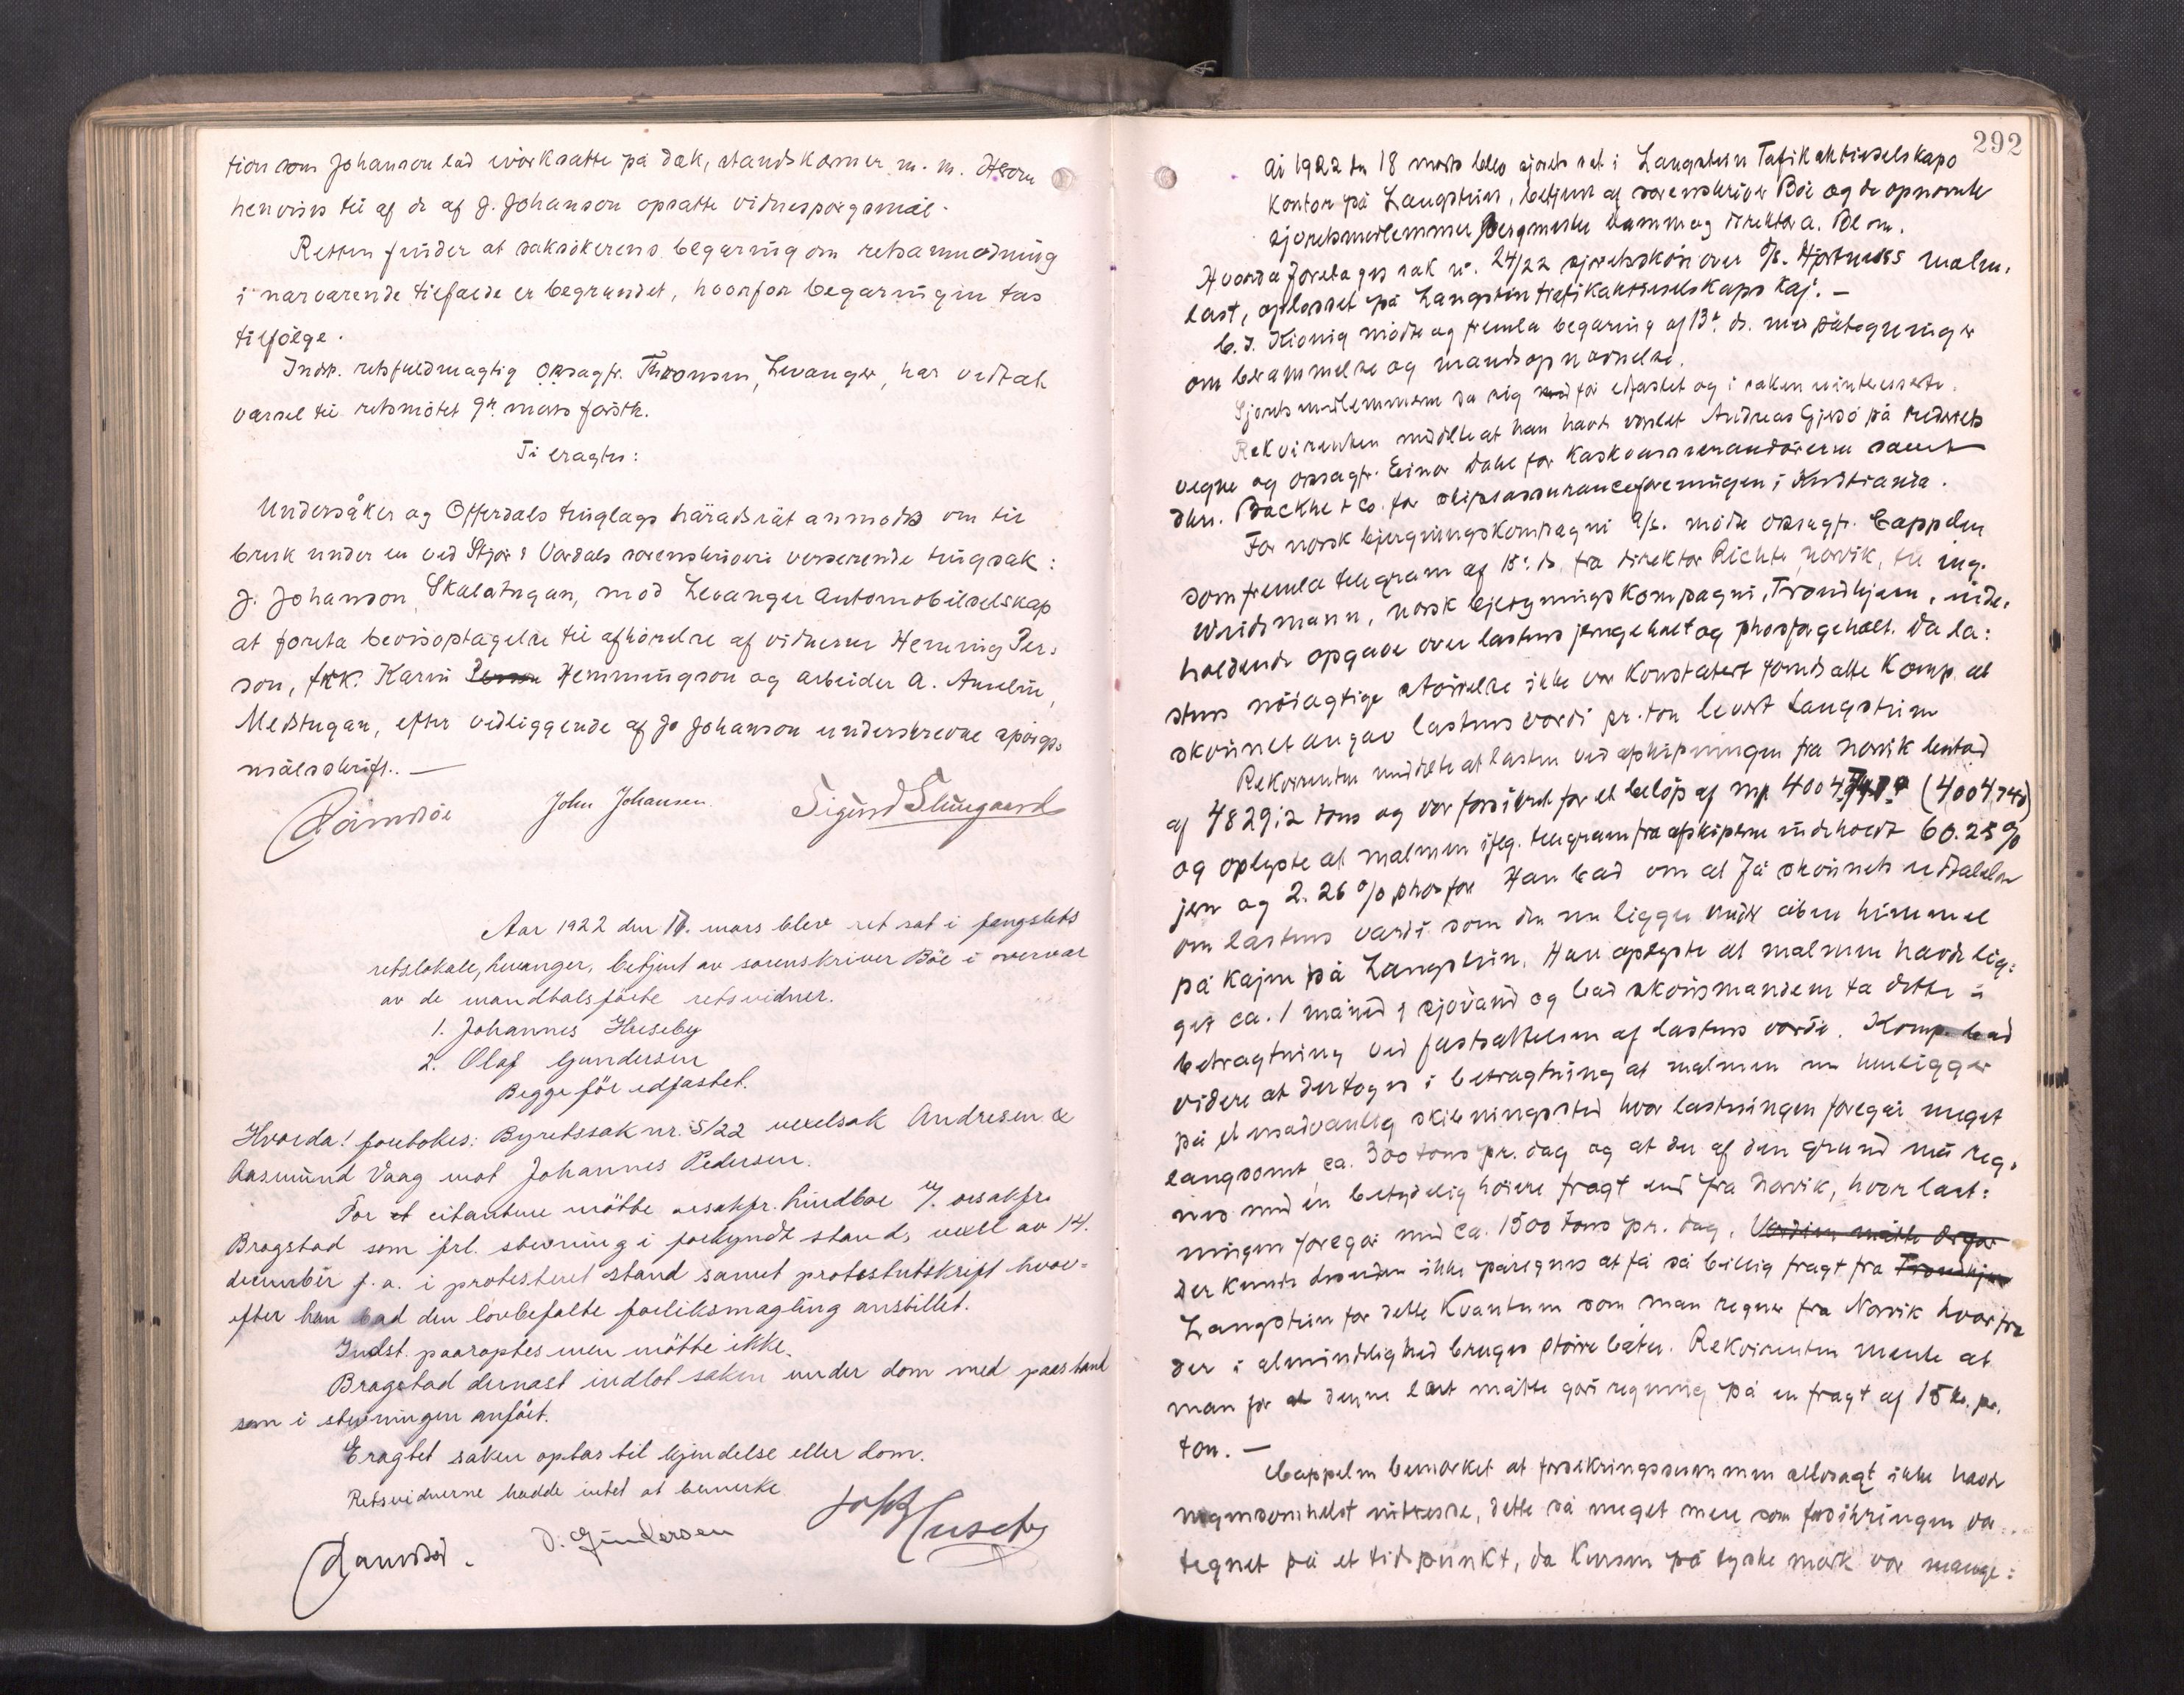 tion som Johanson lod iverksatte på dæk, standskærmer m. m. Herom
henvises til af de af J. Johanson opsatte vidnespørgsmål.
Retten finder at saksökerens begæring om retsanmodning
i nærværende tilfælde er begrundet, hvorfor begæringen tas
tilfölge.
Indst. retsfuldmægtig orsagfr. Thomsen, Levanger, har vedtat
varsel til retsmötet 9n. mars förstk.
Ti eragtes:
Undersåker og Offerdals tinglags häradsrät anmodes om til
bruk under en ved Stjör & Værdals sorenskriveri verserende tingsak:
J. Johanson, Skalstugan, mod Levanger Automobilselskap
at foreta bevisoptagelse til afhörelse af vidnerne Henning Per-
son, frk. Karin Hemmingson og arbeider A. Amelin,
Medstugan, efter vedliggende af J. Johanson underskrevne spörgs-
målsskrift. —
John Johansen
Sigurd Stuegaard
Aar 1922 den 17. mars blev ret sat i fængslets
retslokale, Levanger, betjent av sorenskriver Böe i overvær
av de mandtalsförte retsvidner.
1. Johannes Huseby
2. Olaf Gundersen
Begge för edfæstet.
Hvorda! foretokes: Byretssak nr. 5/22 vexelsak Andresen &
Aasmund Vaag mot Johannes Pedersen.
For citantene mötte orsakfr. Lindboe v/ orsakfr.
Bragstad som frl. stevning i forkyndt stand, vexel av 14.
december f. a. i protesteret stand samt protestutskrift hvor-
efter han bad den lovbefalte forliksmægling anstillet.
Indst. paaroptes men mötte ikke.
Bragstad dernæst indlot saken under dom med paastand
som i stevningen anfört.
Eragtet saken optas til kjendelse eller dom.
Retsvidnerne hadde intet at bemerke.
O. Gundersen
Joh. Huseby
292
År 1922 den 18 mars blev sjörets sat i Langstein Trafikaktieselskaps
kontor på Langstein, betjent af sorenskriver Böe og de opnævnte
sjöretsmedlemmer bergmester Damm og direktör A. Blom.
Hvorda foretoges sak nr. 24/22 sjöretsskön over D/S. Hjortnæss malm-
last, oplosset på Langstein trafikaktieselskaps kaj. —
C. J. Kionig mödte og fremla begæring af 13de ds. med påtegninger
om berammelse og mandsopnævnelse.
Sjöretsmedlemmerne sa sig för edfæstet og i saken uinteresserte.
Rekvirenten meddelte at han havde varslet Andreas Gjessö på rederiets
vegne og orsagfr. Einar Dahl for kaskoassurandörerne samt
dhrr. Backhe & Co. for skibsassuranceforeningen i Kristiania.
For norsk bjergningskompagni A/s. mödte orsagfr. Cappelen
som fremla telegram af 15de ds. fra direktör Richter, Narvik, til ing.
Weidemann, norsk bjergningskompagni, Trondhjem, inde-
holdende opgave over lastens jerngehalt og phosforgehalt. Da la-
stens nöiagtige störrelse ikke var konstatert forutsatte komp. at
skönnet angav lastens værdi pr. ton levert Langstein
Rekvirenten meddelte at lasten ved afskipningen fra Narvik bestod
af 4829,2 tons og var forsikret for et belöp af Mk. (4004740)
og oplyste at malmen iflg. telegram fra afskiperne indeholdt 60.25 %
jern og 2.26 % phosfor. Han bad om at få skönnets uttalelse
om lastens værdi som den nu ligger under åben himmel
på kajen på Langstein. Han oplyste at malmen havde lig-
get ca. 1 måned i sjövand og bad skönsmændene ta dette i
betragtning ved fastsættelsen af lastens værdi. Komp. bad
videre at der toges i betragtning at malmen nu henligger
på et usædvanlig skibningssted hvor lastningen foregår meget
langsomt ca. 300 tons pr. dag og at der af den grund må reg-
nes med en betydelig höiere fragt end fra Narvik, hvor last-
ningen foregår med ca. 1500 tons pr. dag. Værdien måtte
der kunde desuden ikke påregnes at få så billig fragt fra Trondhjem
Langstein for dette kvantum som man regner fra Narvik hvorfra
der i almindelighed bruges större båter. Rekvirenten mente at
man for denne last måtte göre regning på en fragt af 15 kr. pr.
ton. —
Cappelen bemærket at forsikringssummen altsagt ikke havde
nogensomhelst interesse, dette så meget mere som forsikringen var
tegnet på et tidspunkt, da kursen på tyske mark var mange-